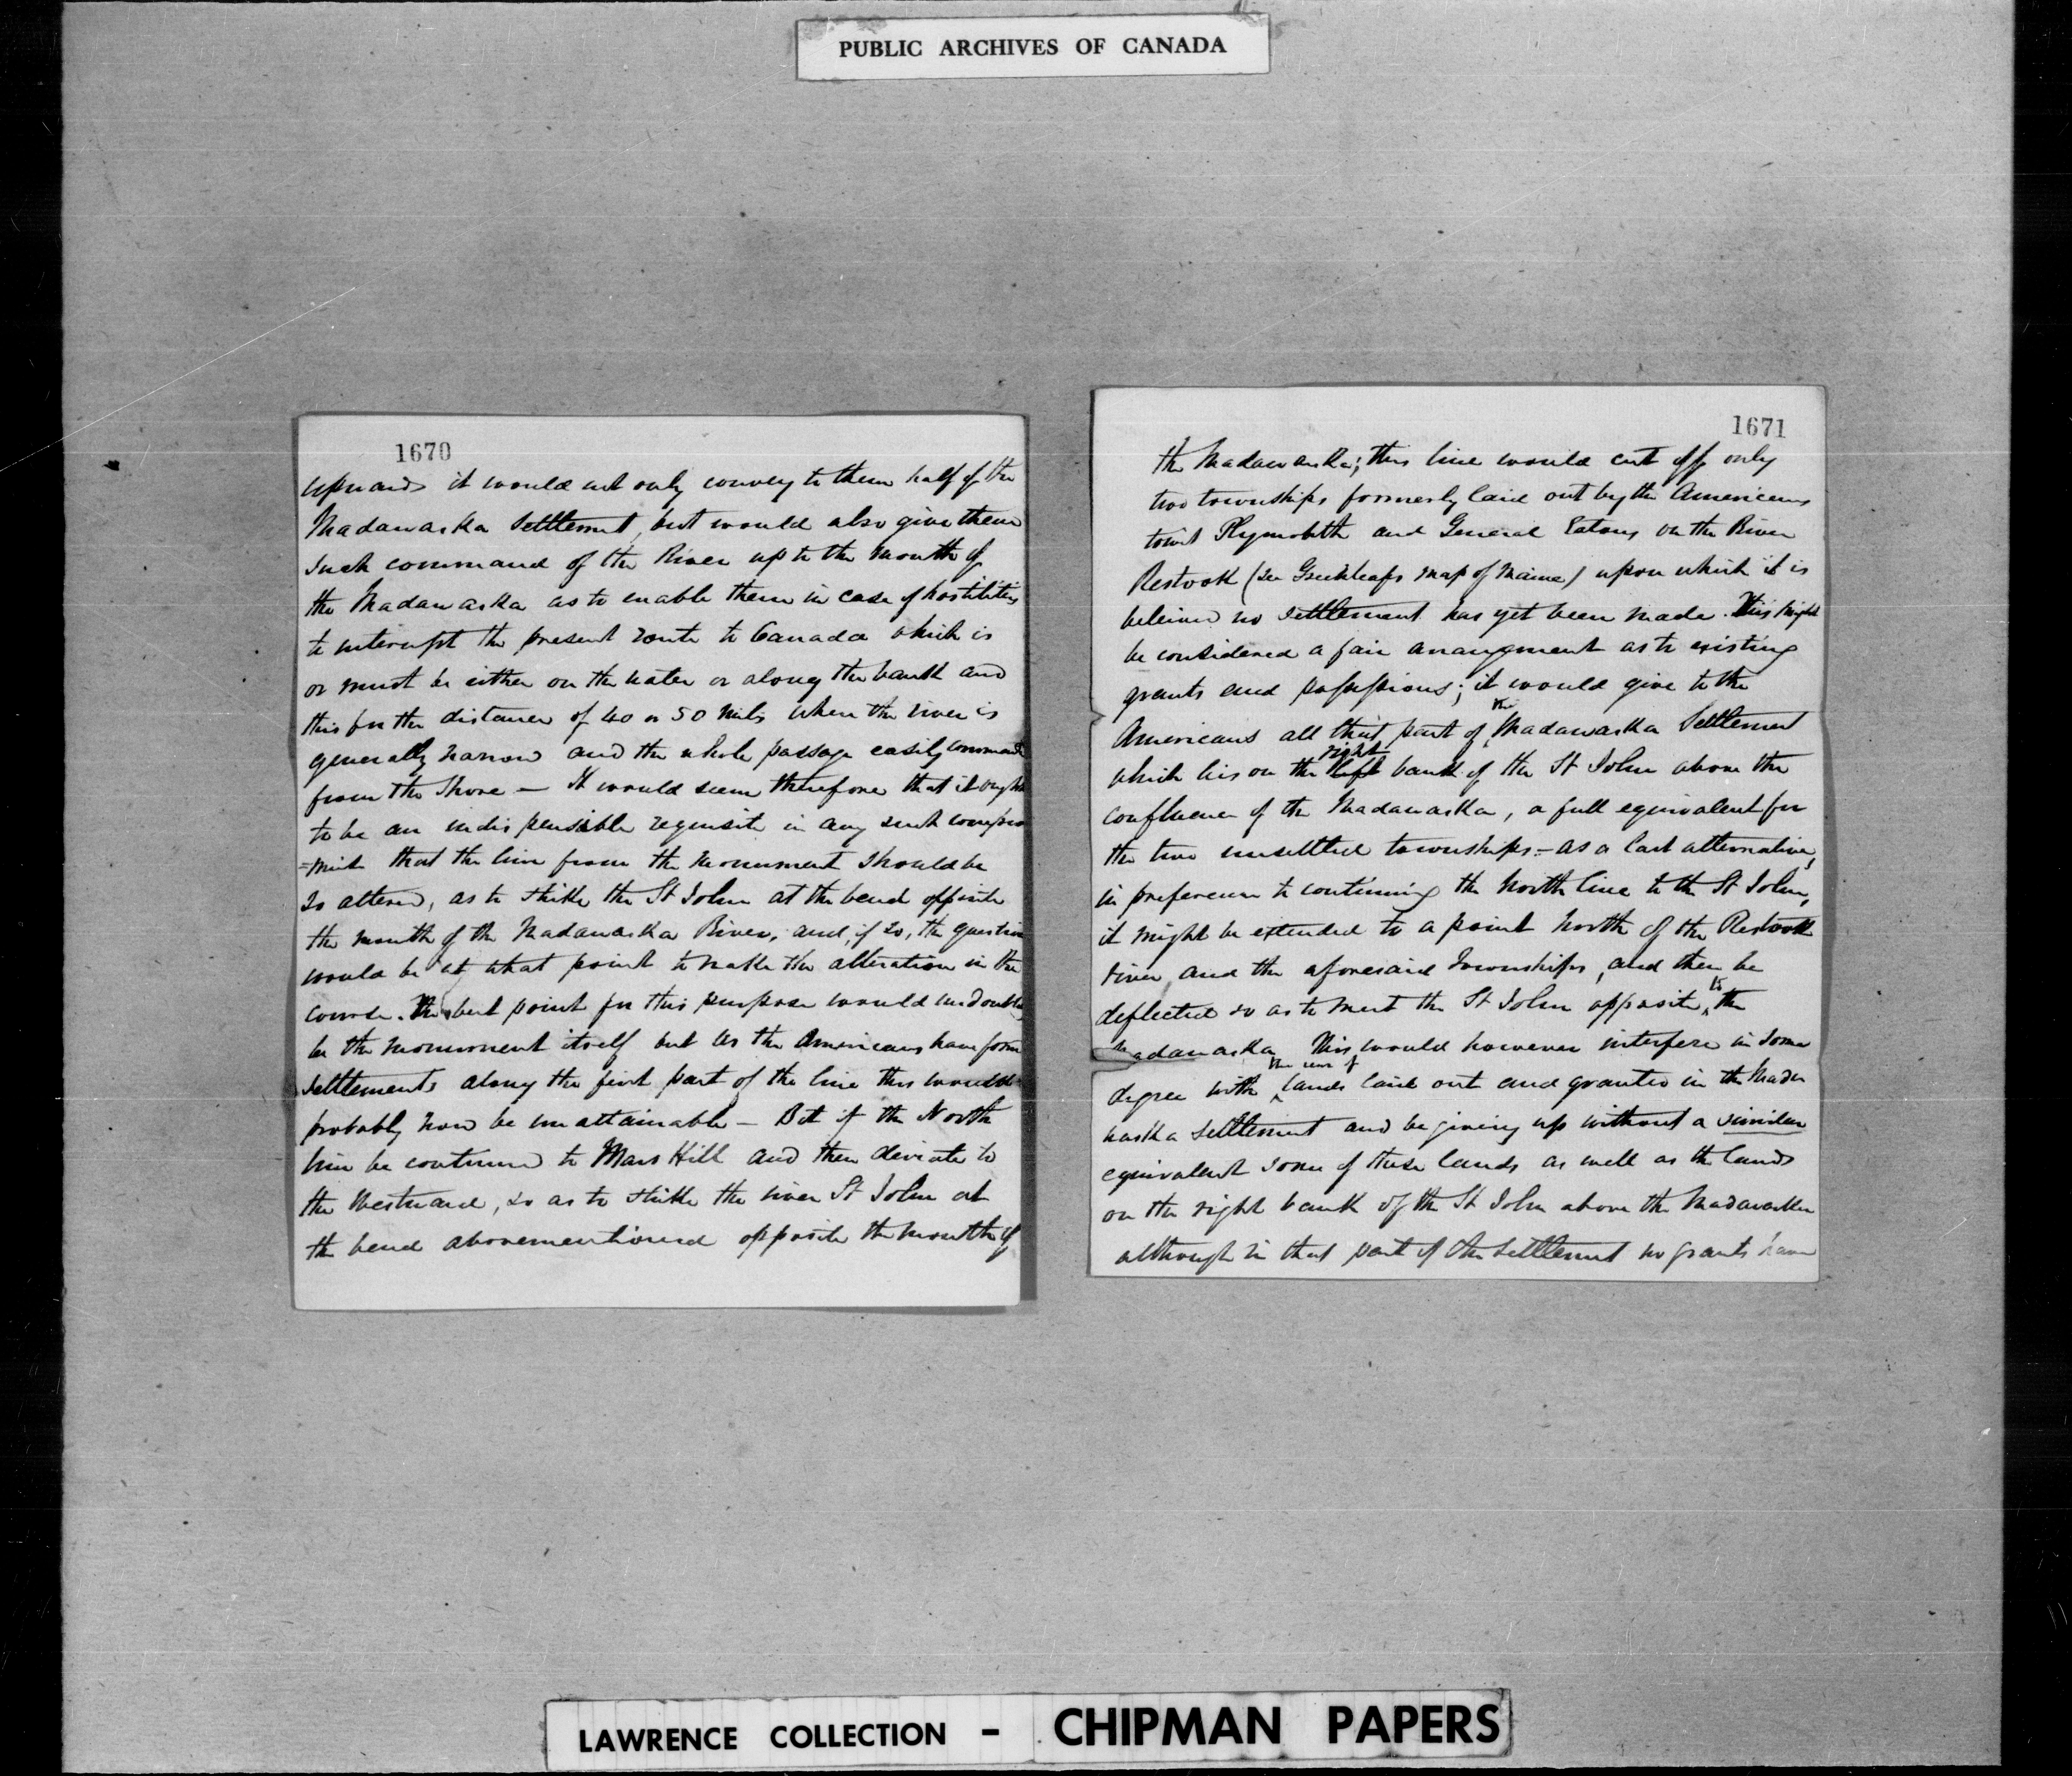 PUBLIC ARCHIVES OF CANADA
1670
upwards it would not only convey to them half of the
Madawaska Settlement, but would also give them
such command of the River up to the mouth of
the Madawaska as to enable them in case of hostilities
to interrupt the present route to Canada which is
or must be either on the water or along the bank and
this for the distance of 40 or 50 miles where the river is
generally narrow and the whole passage easily command
from the Shore — It would seem therefore that it ought
to be an indispensible requisite in any such compro
=mise that the line from the Monument should be
so altered, as to strike the St John at the bend opposite
the mouth of the Madawaska River, and, if so, the question
would be at what point to make the alteration in the
course. The best point for this purpose would undoubtedly
be the monument itself but as the Americans have form
settlements along the first part of the line this would
probably now be unattainable — But if the North
line be continued to Mars Hill and then deviate to
the Westward, so as to strike the river St John at
the bend abovementioned opposite the mouth of
1671
the Madawaska; this line would cut off only
two townships formerly laid out by the Americans
towit Plymouth and General Eatons on the River
Restook (see Greenleafs map of Maine) upon which it is
believed no settlement has yet been made. This might
be considered a fair arrangment as to existing
grants and possessions; it would give to the
the
Americans all that part of Madawaska Settlement
right
which lies on the left bank of the St John above the
confluence of the Madawaska, a full equivalent for
the two unsettled townships. – as a last alternative,
in preference to continuing the North line to the St John,
it might be extended to a point North of the Restook
river and the aforesaid Townships, and then be
to
deflected so as to meet the St John opposite the
Madawaska This would however interfere in some
the rear of
degree with lands laid out and granted in the Mada
waska settlement and be giving up without a similar
equivalent some of these lands as well as the lands
on the right bank of the St John above the Madawaska
although in that part of the settlement no grants have
LAWRENCE COLLECTION – CHIPMAN PAPERS